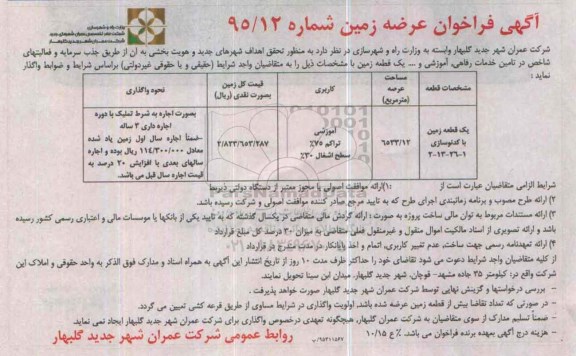 وزارت راه و شهرسازی
آگهی فراخوان عرضه زمین شماره ۹۵/۱۲
شرکت عمران شهر جدید گلبهار وابسته به وزارت راه و شهرسازی در نظر دارد به منظور تحقق اهداف شهرهای جدید و هویت بخشی به آن از طریق جذب سرمایه و فعالیتهای
شاخص در تامین خدمات رفاهی، آموزشی و .... یک قطعه زمین با مشخصات ذیل را به متقاضیان واجد شرایط (حقیقی و یا حقوقی غیردولتی) براساس شرایط و ضوابط واگذار
نماید :
مشخصات قطعه | مساحت عرصه (مترمربع) | کاربری | قیمت کل زمین بصورت نقدی (ریال) | نحوه واگذاری
یک قطعه زمین با کدنوسازی ۲-۱۳-۲۶-۱ | ۶۵۳۳/۱۲ | آموزشی تراکم ۷۵٪ سطح اشغال ۳۰٪ | ۲/۸۲۳/۶۵۳/۲۸۷ | بصورت اجاره به شرط تملیک با دوره اجاره داری ۳ ساله -ضمناً اجاره سال اول زمین یاد شده معادل ۱۱۴/۳۰۰/۰۰۰ ریال بوده و اجاره سالهای بعدی با افزایش ۲۰ درصد به قیمت اجاره سال قبل می باشد.
شرایط الزامی متقاضیان عبارت است از : ۱)ارائه موافقت اصولی یا مجوز معتبر از دستگاه دولتی ذیربط
۲) ارائه طرح مصوب و برنامه زمانبندی اجرای طرح که به تایید مرجع صادر کننده موافقت اصولی و شرکت رسیده باشد.
۳) ارائه مستندات مربوط به توان مالی ساخت پروژه به صورت : ارائه گردش مالی متقاضی در یکسال گذشته که به تایید یکی از بانکها یا موسسات مالی و اعتباری رسمی کشور رسیده
باشد و ارائه تصویری از اسناد مالکیت اموال منقول و غیرمنقول فعلی متقاضی به میزان ۳۰ درصد کل مبلغ قرارداد
۴) ارائه تعهدنامه رسمی جهت ساخت، عدم تغییر کاربری، اتمام و اخذ پایانکار در مدت مندرج در قرارداد
از کلیه متقاضیان واجد شرایط دعوت می شود تقاضای خود را حداکثر ظرف مدت ۱۰ روز از تاریخ انتشار این آگهی به همراه اسناد و مدارک فوق الذکر به واحد حقوقی و املاک این
شرکت واقع در: کیلومتر ۳۵ جاده مشهد- قوچان، شهر جدید گلبهار، میدان ابن سینا تحویل نمایند.
- بررسی درخواستها و گزینش نهایی توسط شرکت عمران شهر جدید گلبهار صورت خواهد پذیرفت.
- در صورتی که تعداد تقاضا بیش از قطعه زمین عرضه شده باشد، اولویت واگذاری در شرایط مساوی از طریق قرعه کشی تعیین می گردد.
- ضمناً تسلیم مدارک از سوی متقاضیان به شرکت عمران گلبهار، هیچگونه تعهدی درخصوص واگذاری برای شرکت عمران شهر جدید گلبهار ایجاد نمی نماید.
- هزینه درج آگهی بعهده برنده فراخوان می باشد. ک ع ۱۰/۱۵
روابط عمومی شرکت عمران شهر جدید گلبهار